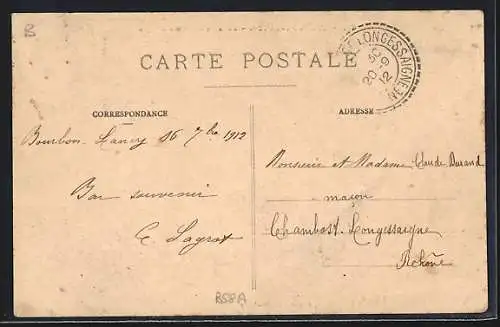 B
CARTE POSTALE
LONGESSAIGNE
20 - 9
12
CORRESPONDANCE
ADRESSE
Bourbon Lancy 16 7bre 1912
Bon souvenir
C Lagrost
Monsieur et Madame Claude Durand
maçon
Chambost-Longessaigne
Rhône
R58A